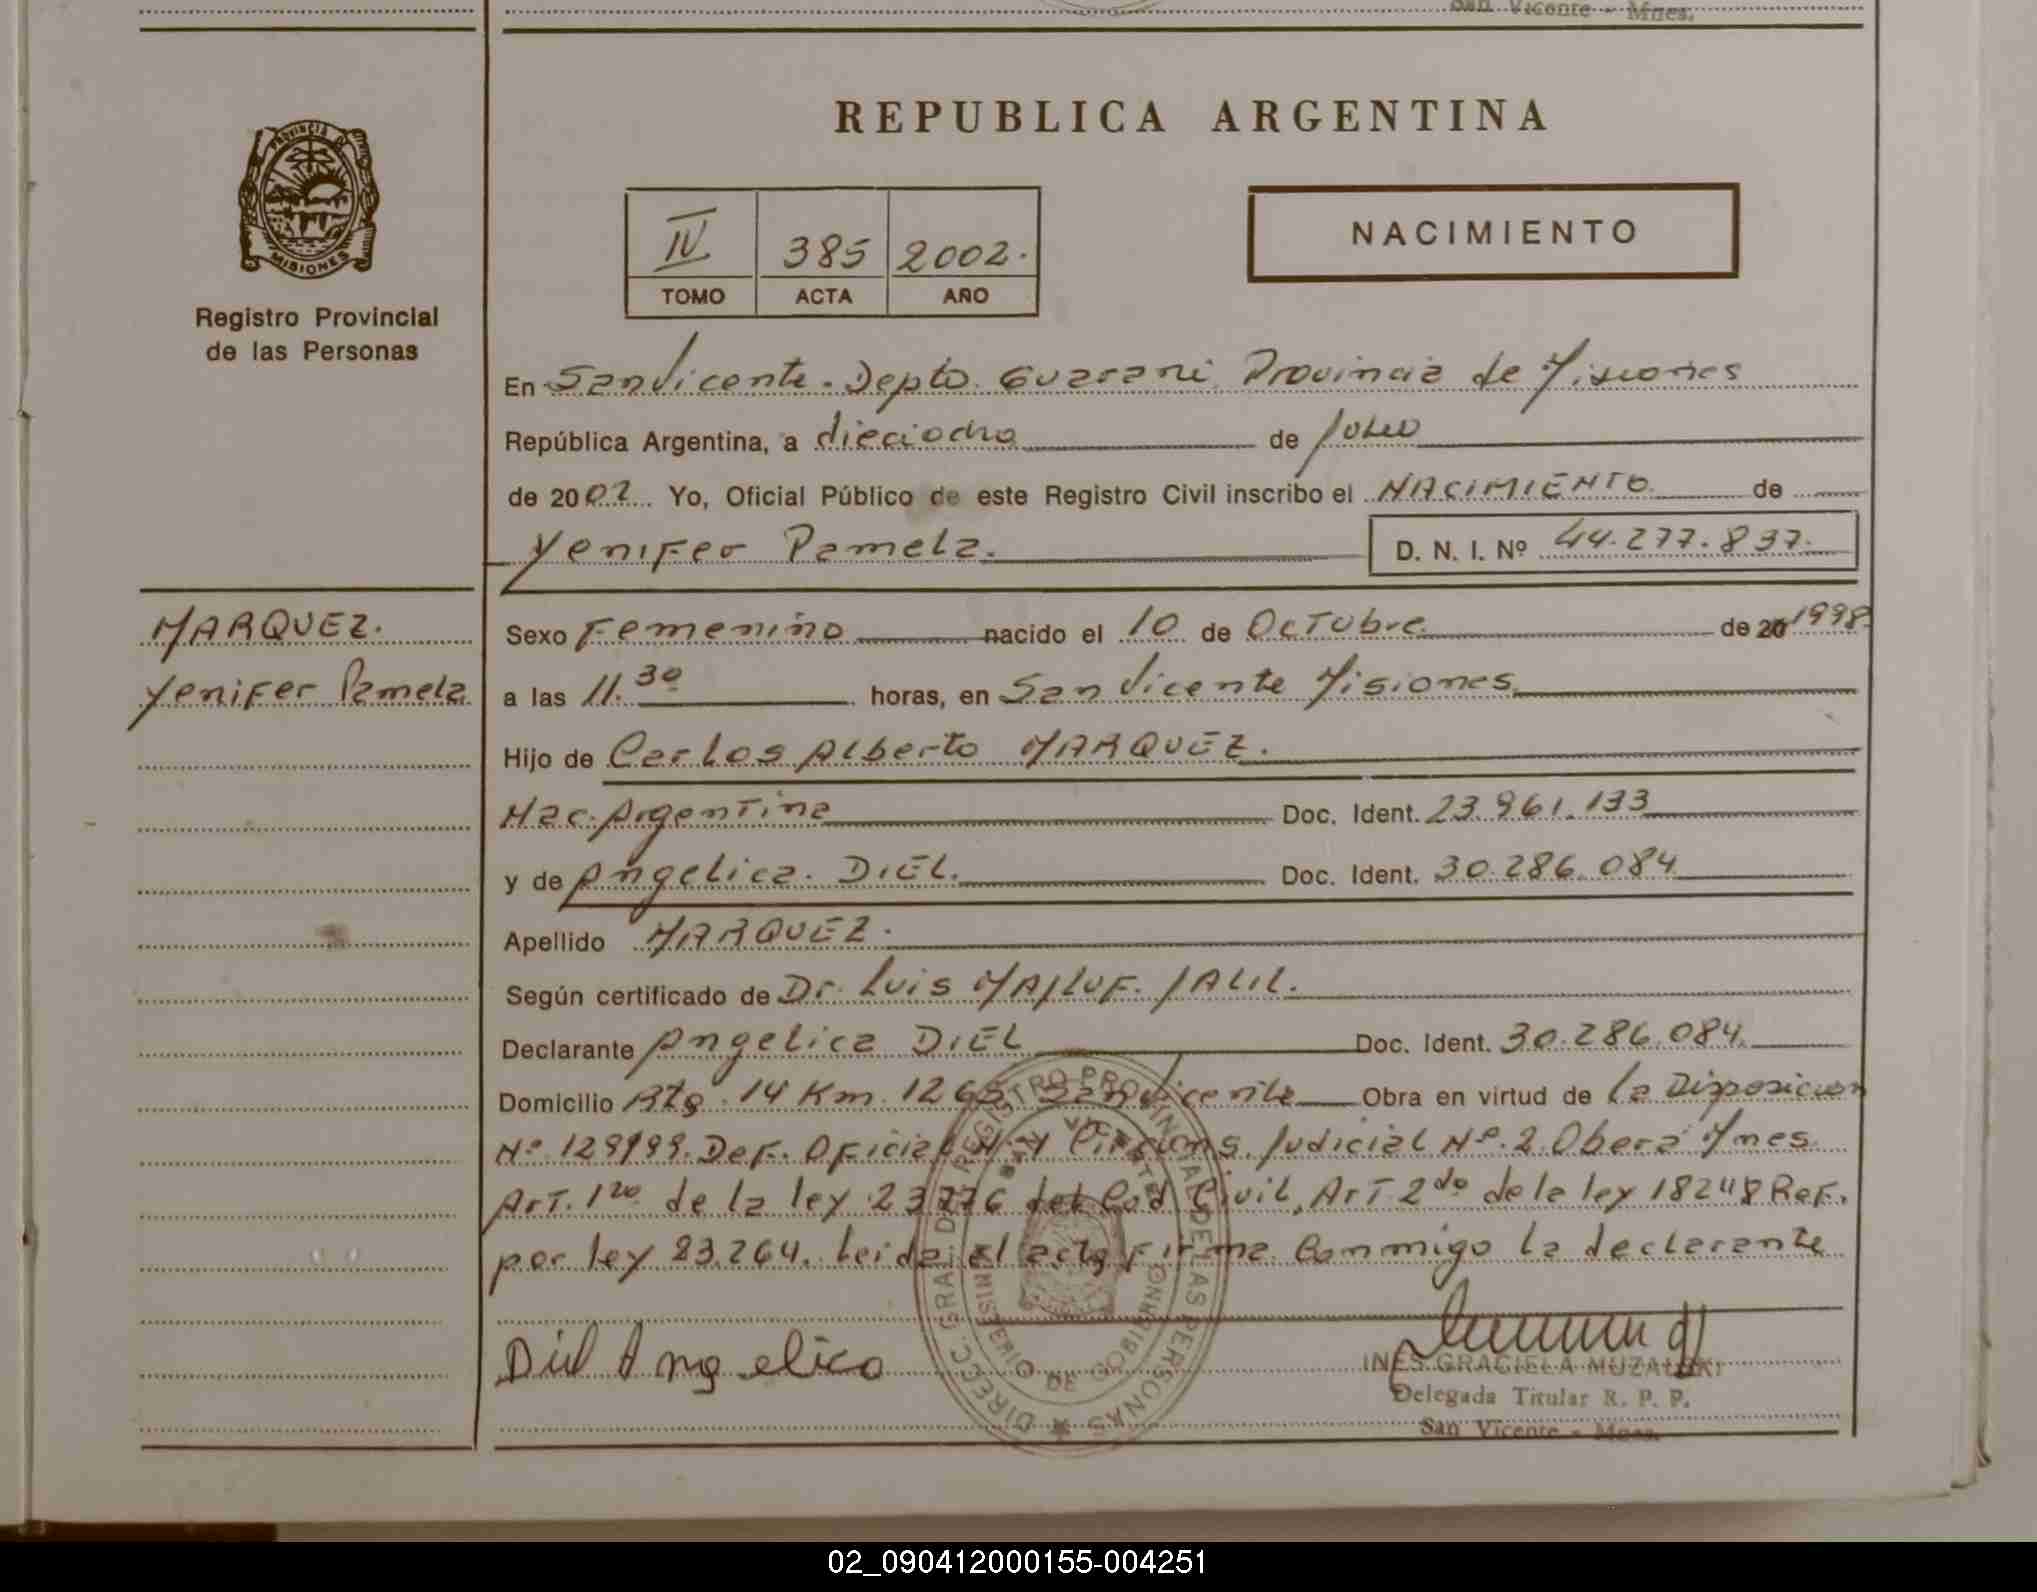 San Vicente - Mnes.
REPUBLICA ARGENTINA
PROVINCIA DE
MISIONES
Registro Provincial
de las Personas
IV 385 2002.
TOMO ACTA AÑO
NACIMIENTO
En San Vicente. Depto. Guarani Provincia de Misiones
República Argentina, a dieciocho de Julio
de 2002 Yo, Oficial Público de este Registro Civil inscribo el NACIMIENTO de
Yenifer Pamela. D. N. I. Nº 44.277.837.
MARQUEZ.
Yenifer Pamela
Sexo Femenino nacido el 10 de Octubre de 20 1998.
a las 11.30 horas, en San Vicente Misiones
Hijo de Carlos Alberto MARQUEZ.
Nac. Argentina Doc. Ident. 23.961.133
y de Angelica. DIEL. Doc. Ident. 30.286.084
Apellido MARQUEZ.
Según certificado de Dr. Luis MAJLUF. JALIL.
Declarante Angelica DIEL Doc. Ident. 30.286.084.
Domicilio Rta. 14 Km. 1265 San Vicente Obra en virtud de la Disposicion
Nº 129/99. Def. Oficial Nº 1 Circuns. Judicial Nº 2. Obera Mnes
Art. 1ro de la ley 23776 del Cod Civil, Art 2do de la ley 18248 Ref.
por ley 23.264. Leida el acta firma Conmigo la declarante
Diel Angelica
DIRECC. GRAL. DEL REGISTRO PROVINCIAL DE LAS PERSONAS
SAN VICENTE
MINISTERIO DE GOBIERNO
INES GRACIELA MUZALSKI
Delegada Titular R. P. P.
San Vicente - Mnes.
02_090412000155-004251